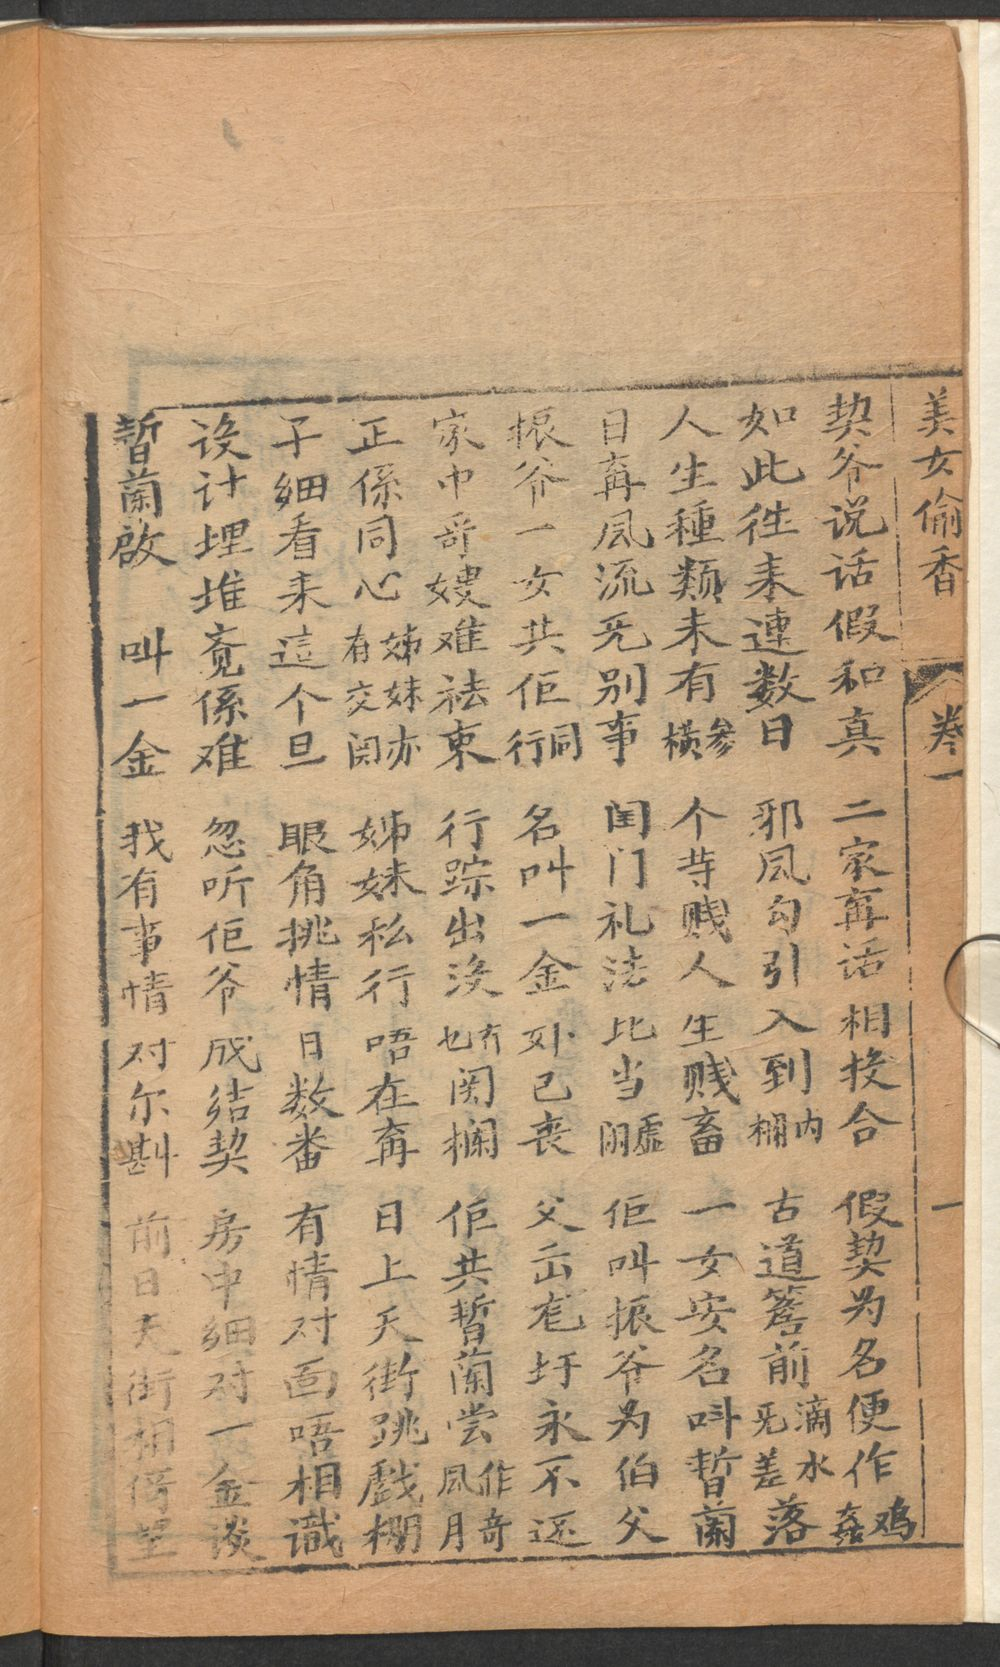 美女偷香 卷一 一
契爷说话假和真 二家再话相投合 假契为名便作鸡姦
如此往来連数日 邪风勾引入到内棚 古道簷前滴水无差落
人生種類未有参橫 个寺贱人生贱畜 一女安名叫晢蘭
日再风流无别事 闺门礼法比当虚閉 佢叫振爷为伯父
振爷一女共佢同行 名叫一金外已丧 父击𡧳圩永不返
家中哥嫂难祛束 行踪出没冇也関欄 佢共晢蘭尝作奇風月
正係同心姊妹亦有交関 姊妹私行唔在再 日上天街跳戲棚
子細看来這个旦 眼角挑情日数番 有情对面唔相識
设计埋堆竟係难 忽听佢爷成结契 房中细对一金谈
晢蘭啟叫一金 我有事情对尔斟 前日天街相倚望